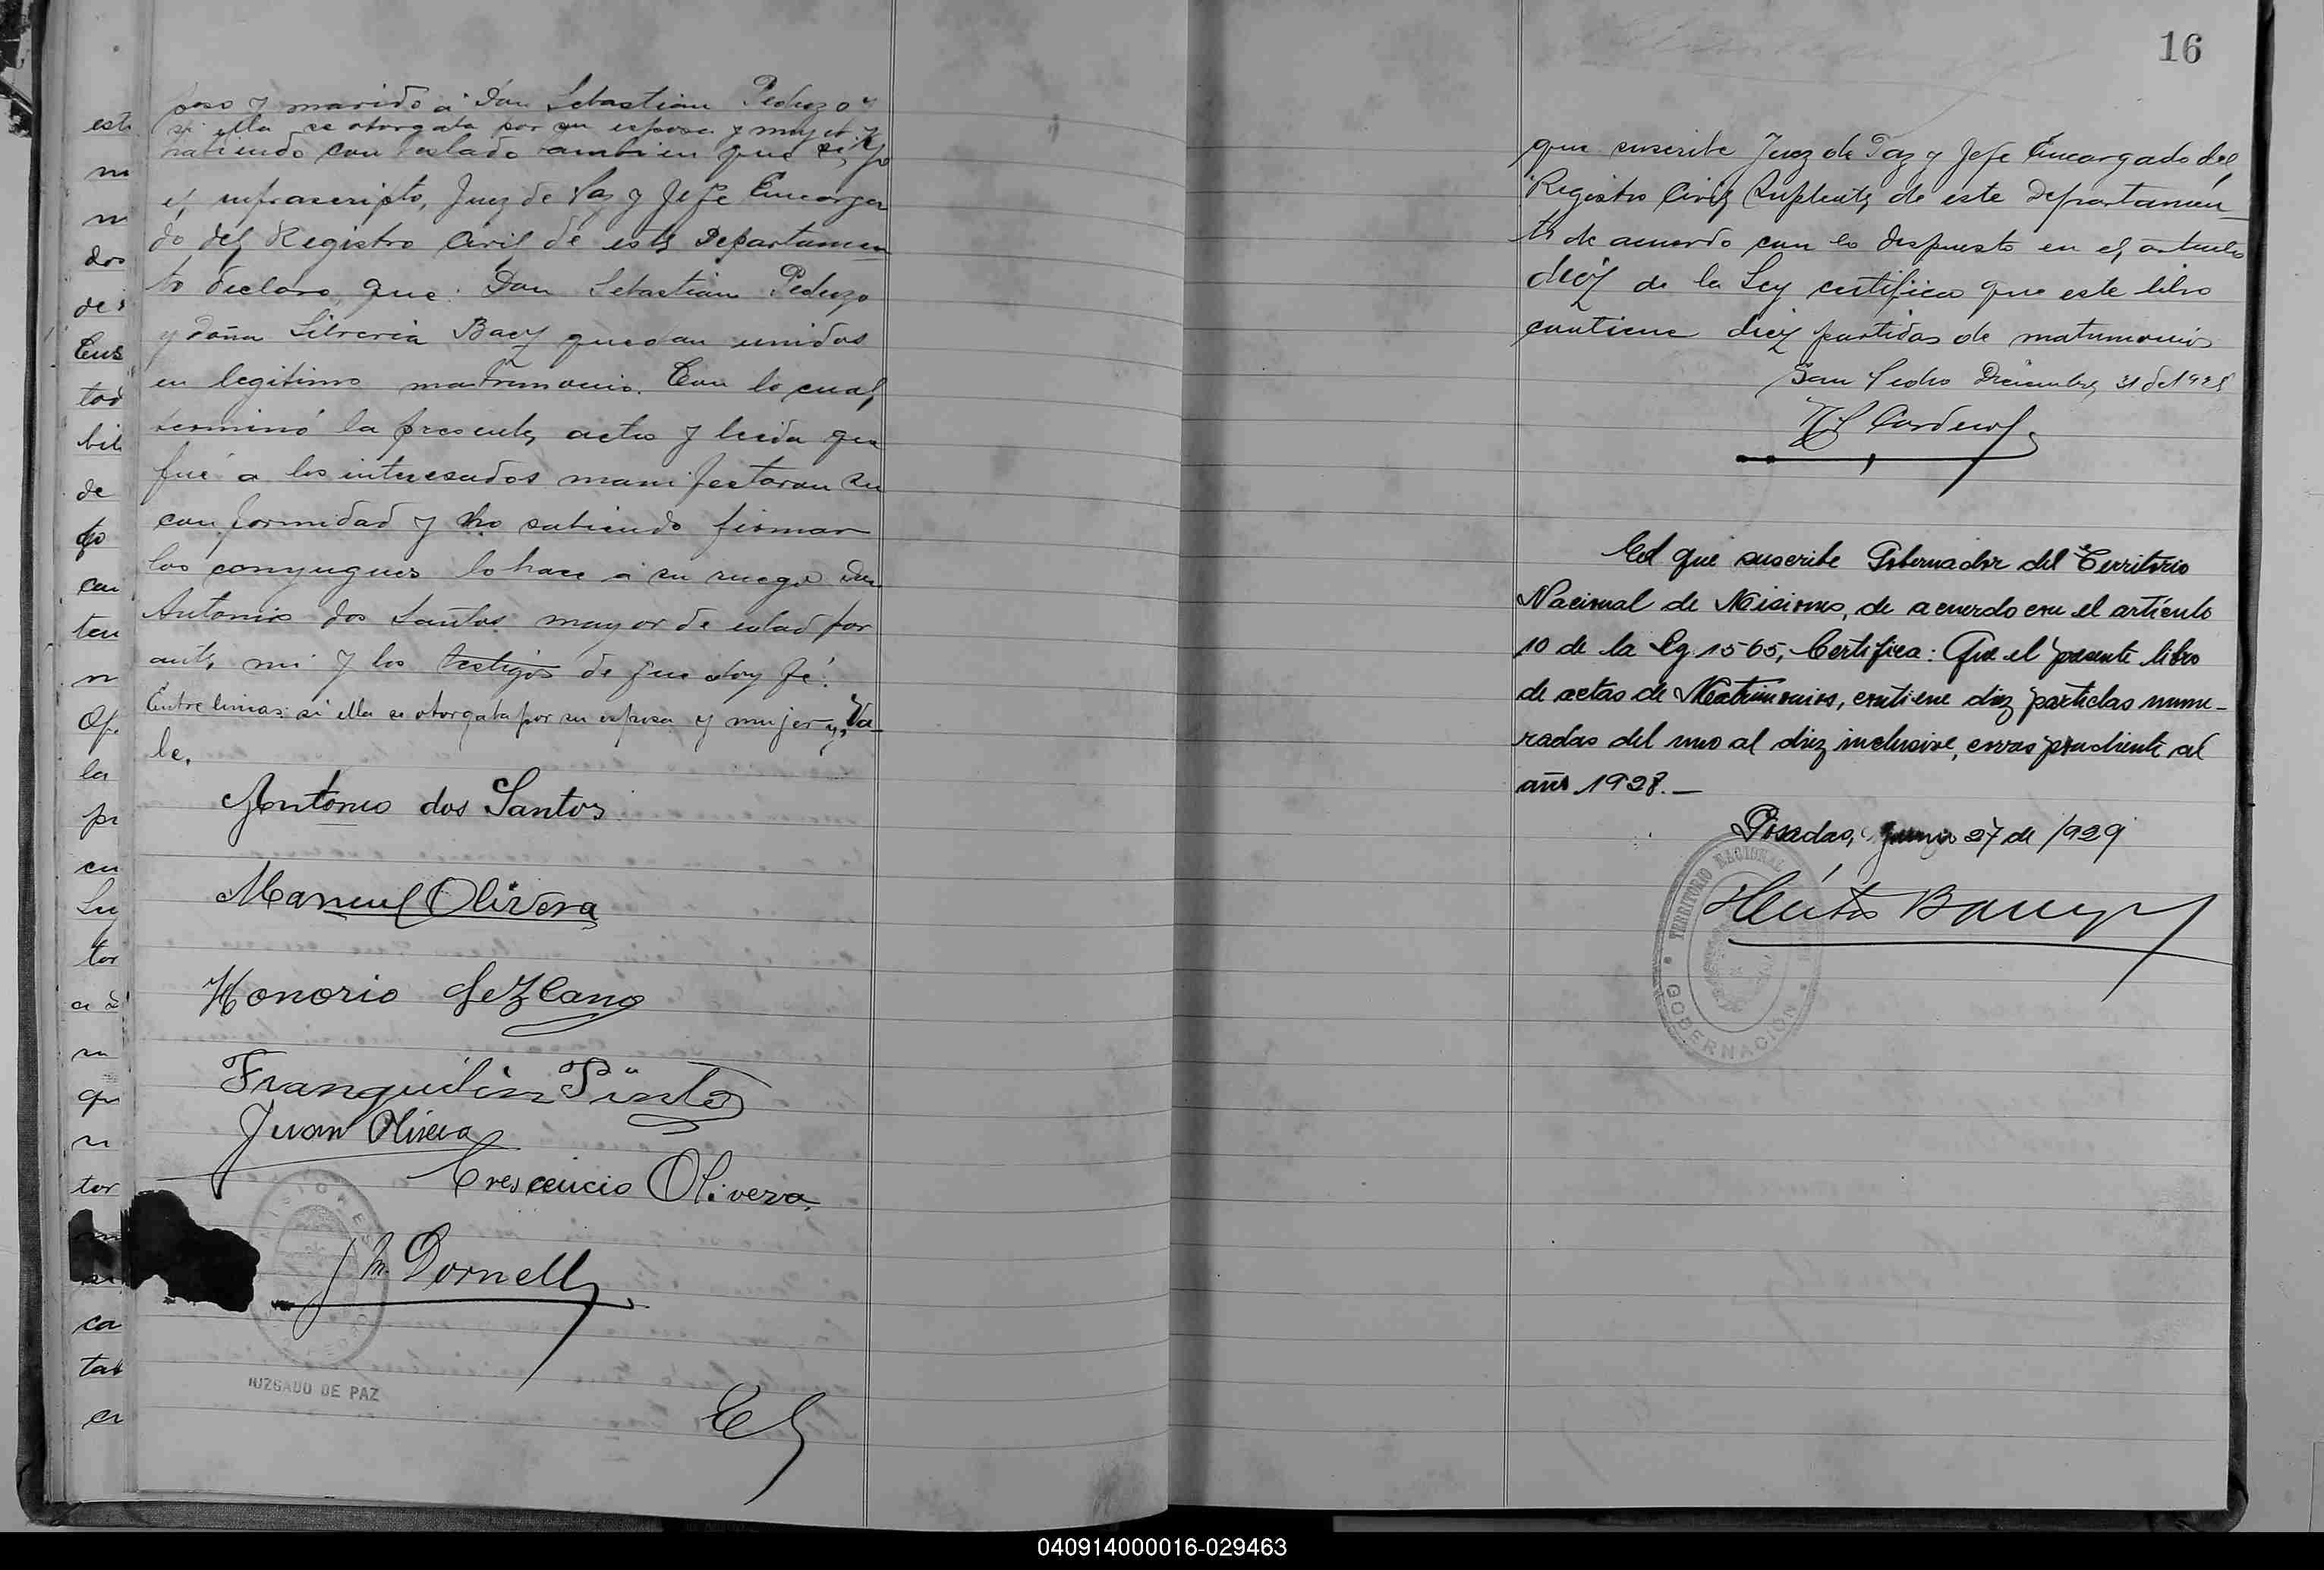 poso y marido á Don Sebastian Pedrozo y
si ella se otorgaba por su esposa y mujer y
habiendo contestado tambien que si, yo
el infrascripto, Juez de Paz y Jefe Encarga
do del Registro Civil de este Departamen
to declaro que: Don Sebastian Pedrozo
y doña Libreria Baez quedan unidos
en legitimo matrimonio. Con lo cual
terminó la presente acta y leida que
fué a los interesados manifestaron su
conformidad y no sabiendo firmar
los conyugues lo hace á su ruego Don
Antonio dos Santos mayor de edad por
ante mi y los testigos de que doy fé.
Entre lineas: si ella se otorgaba por su esposa y mujer y, Va-
le.
Antonio dos Santos
Manuel Olivera
Honorio Lezcano
Franquilin Pinto
Juan Olivera
Crescencio Olivera
J M. Dornell
MISIONES
JUZGADO DE PAZ
est
m
n
dos
de
Cus
tod
bil
de
to
can
ten
n
Of.
la
pr
en
Ley
tor
a d
su
qu
n
tor
ca
tab
en
16
que suscribe Juez de Paz y Jefe Encargado del
Registro Civil Suplente, de este Departamen-
to de acuerdo con lo dispuesto en el articulo
diez de la Ley certifica que este libro
contiene diez partidas de matrimonios
San Pedro Diciembre, 31 de 1928
El que suscribe Gobernador del Territorio
Nacional de Misiones, de acuerdo con el artículo
10 de la Ley 1565, Certifica: Que el presente libro
de actas de Matrimonios, contiene diez partidas nume-
radas del uno al diez inclusive, correspondiente al
año 1928.—
Posadas, Junio 27 de 1929
Héctor Barreyro
TERRITORIO NACIONAL
GOBERNACION
040914000016-029463